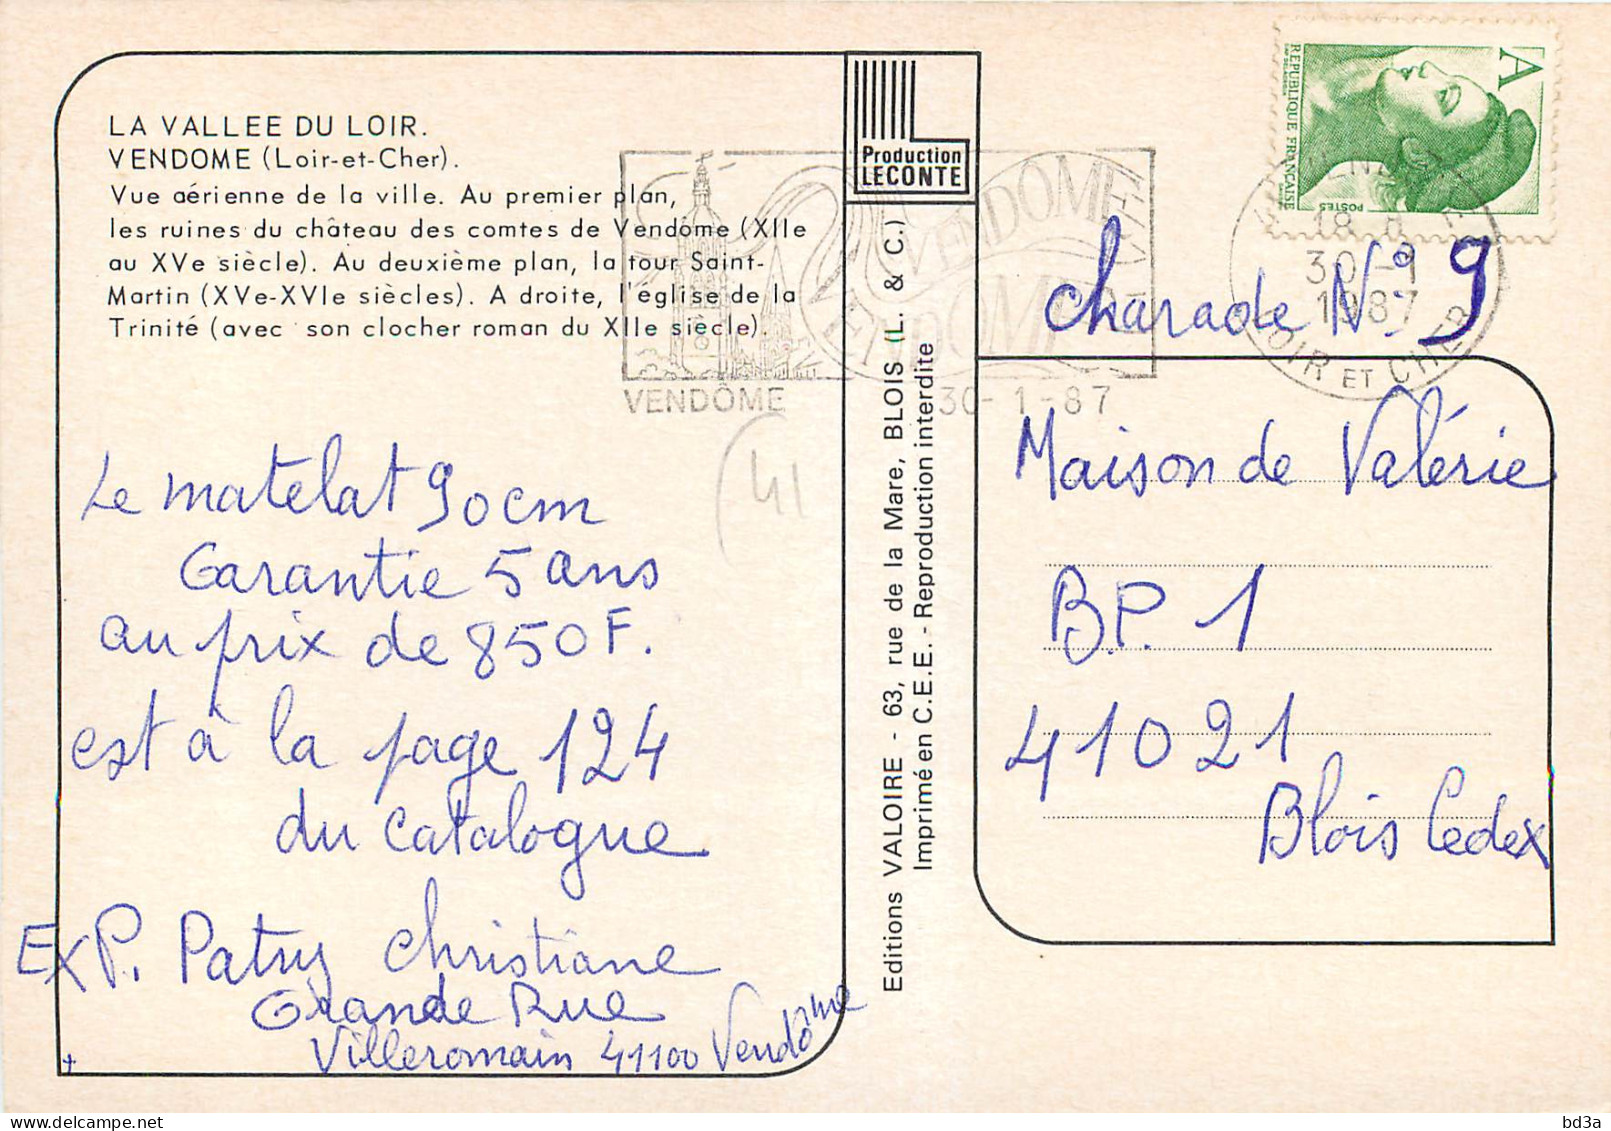 LA VALLEE DU LOIR.
VENDOME (Loir-et-Cher).
Vue aérienne de la ville. Au premier plan,
les ruines du château des comtes de Vendôme (XIIe
au XVe siècle). Au deuxième plan, la tour Saint-
Martin (XVe-XVIe siècles). A droite, l'église de la
Trinité (avec son clocher roman du XIIe siècle).
Production
LECONTE
VENDÔME
VENDÔME
VENDÔME
30-1-87
A
REPUBLIQUE FRANÇAISE
POSTES
18 H
30-1
1987
LOIR ET CHER
41
Le matelat 90cm
Garantie 5 ans
au prix de 850F.
est à la page 124
du catalogue
EXP. Patry Christiane
Grande Rue
Villeromain 41100 Vendôme
Editions VALOIRE - 63, rue de la Mare, BLOIS (L. & C.)
Imprimé en C.E.E. - Reproduction interdite
Charade N° 9
Maison de Valérie
B.P. 1
41021
Blois Cedex
delcampe.net
bd3a